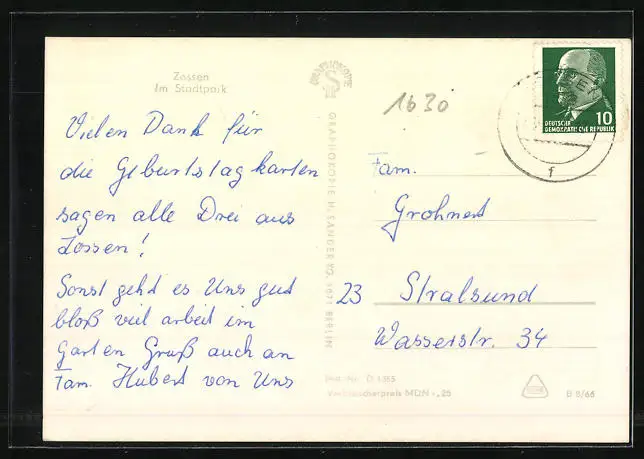 Zossen
Im Stadtpark
Vielen Dank für
die Geburtstagkarten
sagen alle Drei aus
Zossen!
Sonst geht es Uns gut
bloß viel arbeit im
Garten Gruß auch an
Fam. Hubert von Uns
GRAPHOKOPIE H. SANDER KG, 1071 BERLIN
1630
10
DEUTSCHE
DEMOKRATISCHE REPUBLIK
f
Fam.
Grohnert
23 Stralsund
Wasserstr. 34
Verbraucherpreis MDN -,25
B 8/66